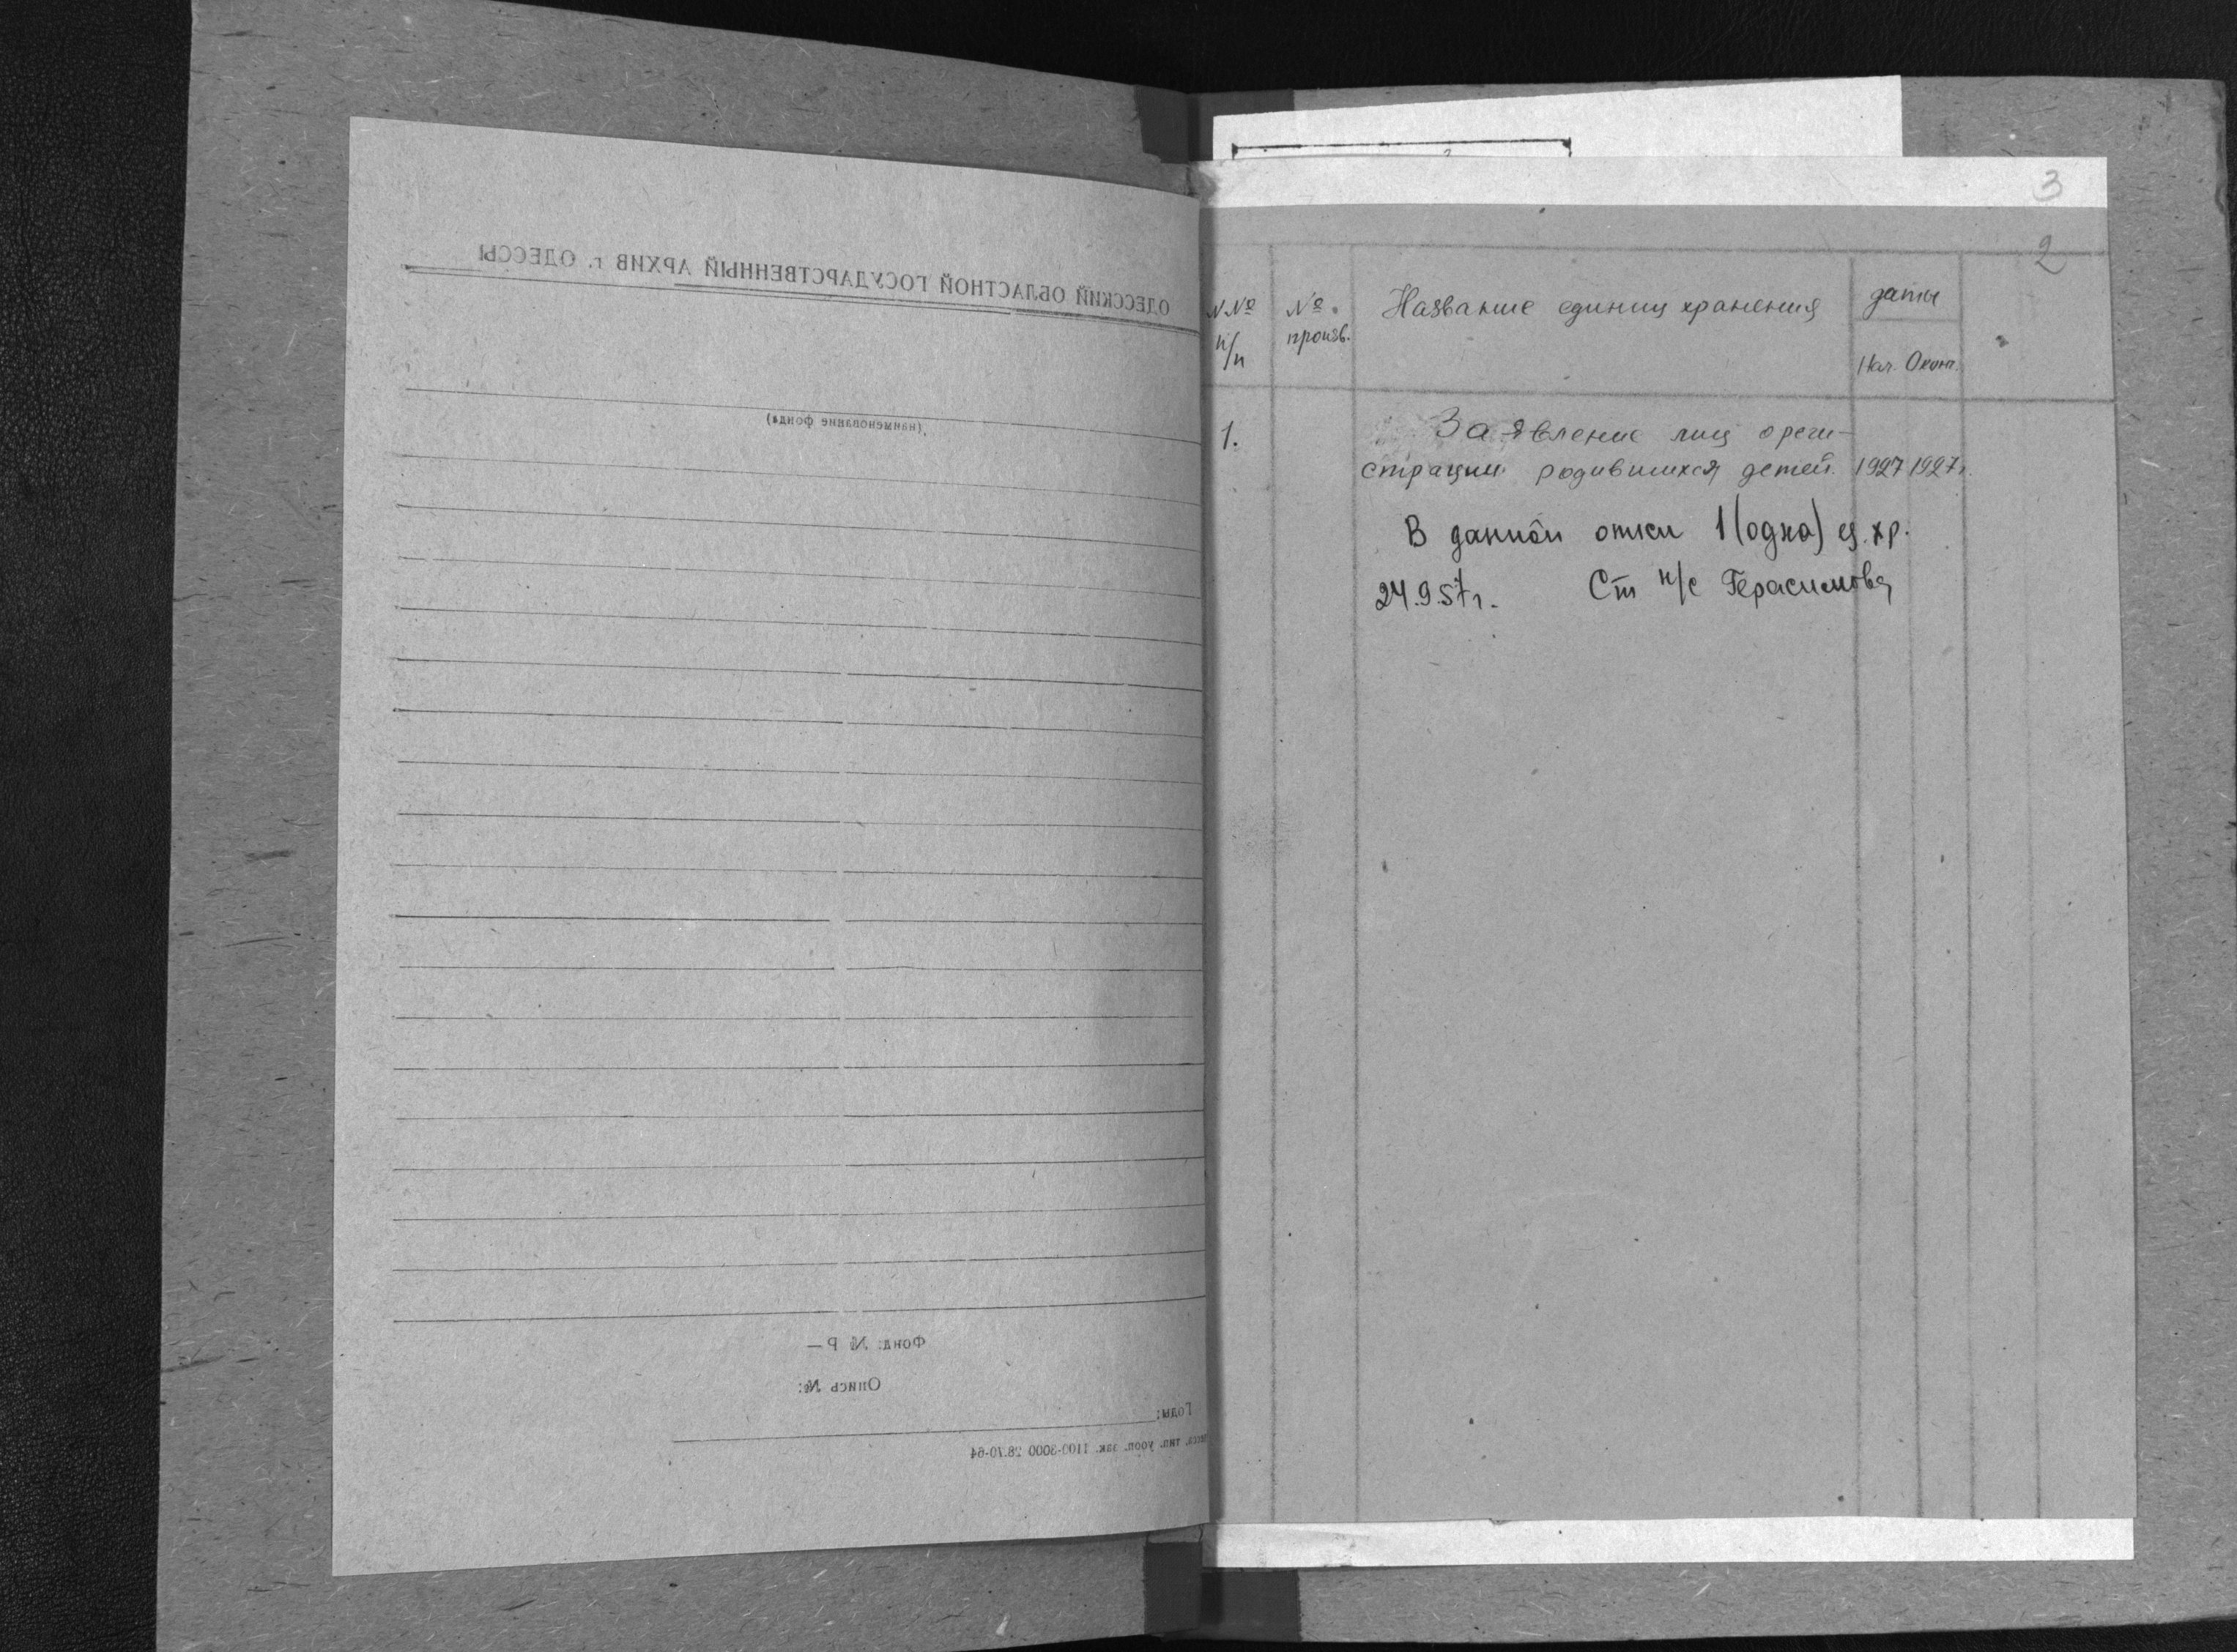 ОДЕССКИЙ ОБЛАСТНОЙ ГОСУДАРСТВЕННЫЙ АРХИВ г. ОДЕССЫ
(наименование фонда)
Фонд № Р—
Опись №:
Годы:
тип. уооп. зак. 1100-3000 28.70-64
3
2
N№ п/п
№ произв.
Название единиц хранения
даты
Нач. Оконч.
1.
Заявление лиц о реги-
страции родившихся детей. 1927 1927г.
В данной описи 1 (одна) ед. хр.
24.9.57г. Ст н/с Герасимова